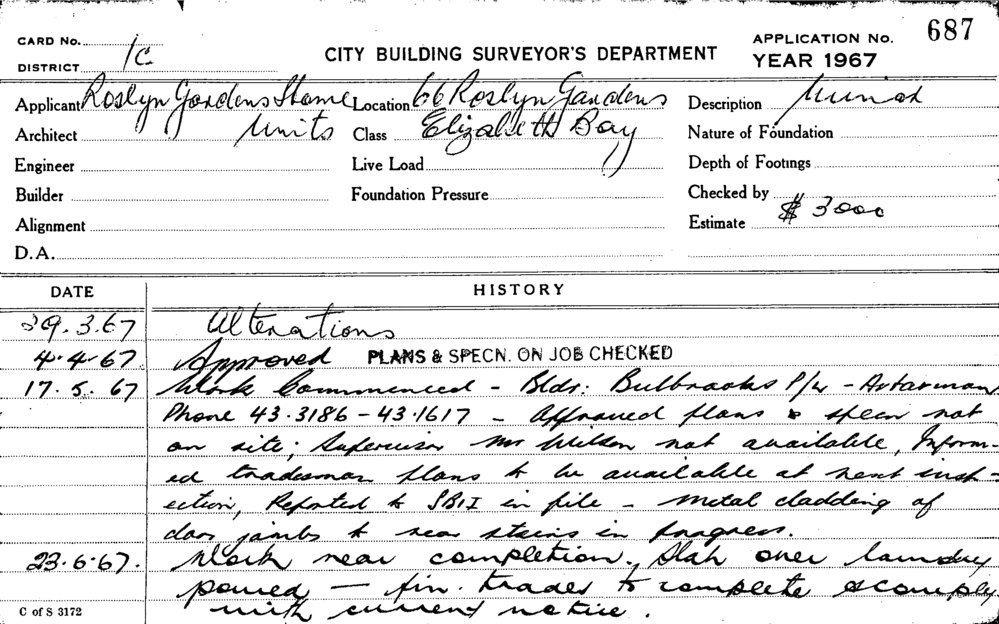 687
CARD No. 1C
DISTRICT
CITY BUILDING SURVEYOR'S DEPARTMENT
APPLICATION No.
YEAR 1967
Applicant Roslyn Gardens Home Location 66 Roslyn Gardens Description
Architect Units Class Elizabeth Bay Nature of Foundation
Engineer Live Load Depth of Footings
Builder Foundation Pressure Checked by
Alignment Estimate $3000
D.A.
DATE HISTORY
29.3.67 Alterations
4.4.67. Approved PLANS & SPECN. ON JOB CHECKED
17.5.67 Work Commenced - Bldr: Bulbrooks P/L - Artarmon
Phone 43.3186 - 43.1617 - Approved plans & specn not
on site; Supervisor Mr Wilson not available, Inform-
ed tradesman plans to be available at next insp-
ection, Reported to SBI in file - metal cladding of
door jambs to rear stairs in progress.
23.6.67. Work near completion. Slab over laundry
poured - fin. trades to complete & comply
with current notice.
C of S 3172